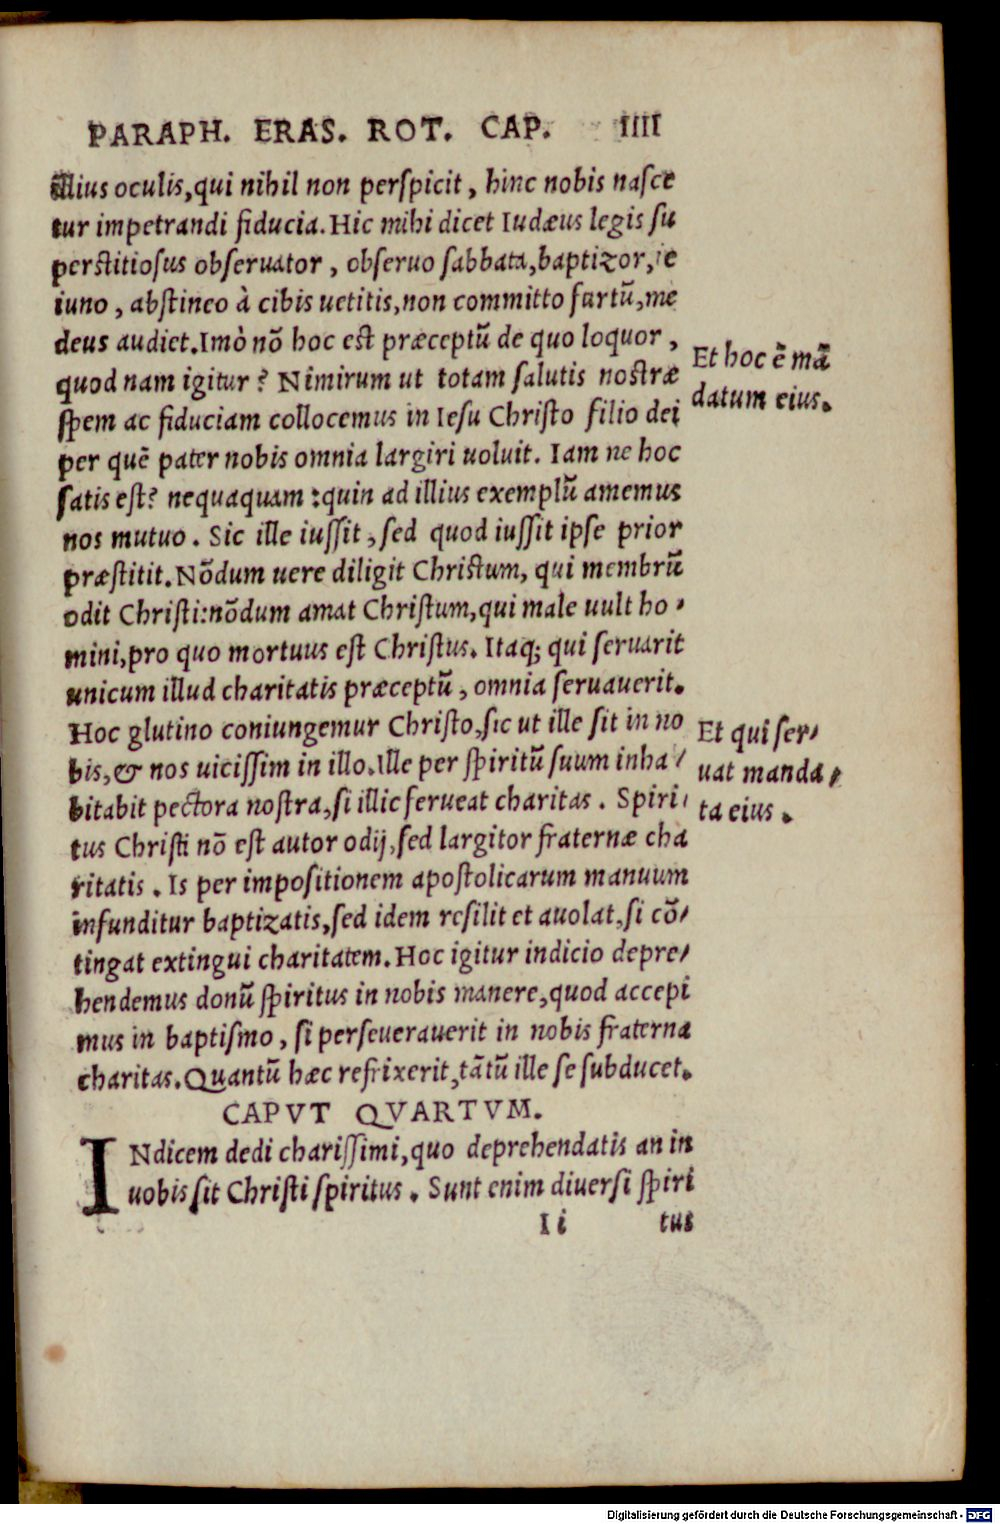 PARAPH. ERAS. ROT. CAP. IIII
illius oculis, qui nihil non perspicit, hinc nobis nasce
tur impetrandi fiducia. Hic mihi dicet Iudæus legis su
perstitiosus obseruator, obseruo sabbata, baptizor, ie
iuno, abstineo à cibis uetitis, non committo furtū, me
deus audiet. Imò nō hoc est præceptū de quo loquor,
quod nam igitur? Nimirum ut totam salutis nostræ
spem ac fiduciam collocemus in Iesu Christo filio dei
per quē pater nobis omnia largiri uoluit. Iam ne hoc
satis est? nequaquam: quin ad illius exemplū amemus
nos mutuo. Sic ille iussit, sed quod iussit ipse prior
præstitit. Nōdum uere diligit Christum, qui membrū
odit Christi: nōdum amat Christum, qui male uult ho-
mini, pro quo mortuus est Christus. Itaq; qui seruarit
unicum illud charitatis præceptū, omnia seruauerit.
Hoc glutino coniungemur Christo, sic ut ille sit in no
bis, & nos uicissim in illo. Ille per spiritū suum inha-
bitabit pectora nostra, si illic ferueat charitas. Spiri-
tus Christi nō est autor odij, sed largitor fraternæ cha
ritatis. Is per impositionem apostolicarum manuum
infunditur baptizatis, sed idem resilit et auolat, si cō-
tingat extingui charitatem. Hoc igitur indicio depre-
hendemus donū spiritus in nobis manere, quod accepi
mus in baptismo, si perseuerauerit in nobis fraterna
charitas. Quantū hæc refrixerit, tātū ille se subducet.
CAPVT QVARTVM.
INdicem dedi charissimi, quo deprehendatis an in
uobis sit Christi spiritus. Sunt enim diuersi spiri
Ii tus
Et hoc ē mā
datum eius.
Et qui ser-
uat manda-
ta eius.
Digitalisierung gefördert durch die Deutsche Forschungsgemeinschaft - DFG